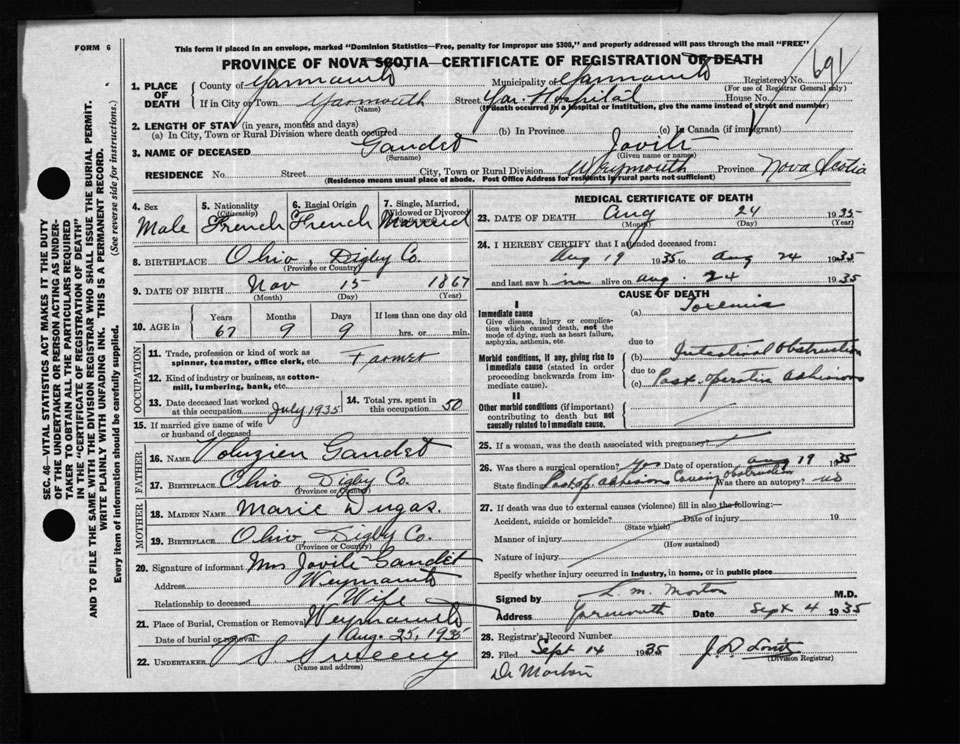 FORM 6
This form if placed in an envelope, marked "Dominion Statistics—Free, penalty for improper use $300," and properly addressed will pass through the mail "FREE"
PROVINCE OF NOVA SCOTIA—CERTIFICATE OF REGISTRATION OF DEATH
1. PLACE OF DEATH County of Yarmouth Municipality of Yarmouth Registered No. 691
(For use of Registrar General only)
If in City or Town Yarmouth Street Yar. Hospital House No.
(Name) (If death occurred in a hospital or institution, give the name instead of street and number)
2. LENGTH OF STAY (in years, months and days)
(a) In City, Town or Rural Division where death occurred (b) In Province (c) In Canada (if immigrant)
3. NAME OF DECEASED Gaudet Jovite
(Surname) (Given name or names)
RESIDENCE No. Street City, Town or Rural Division Weymouth Province Nova Scotia
(Residence means usual place of abode. Post Office Address for residents in rural parts not sufficient)
4. Sex Male
5. Nationality (Citizenship) French
6. Racial Origin French
7. Single, Married, Widowed or Divorced Married
8. BIRTHPLACE Ohio, Digby Co.
(Province or Country)
9. DATE OF BIRTH Nov 15 1867
(Month) (Day) (Year)
10. AGE in Years Months Days If less than one day old
67 9 9 hrs. or min.
OCCUPATION
11. Trade, profession or kind of work as spinner, teamster, office clerk, etc. Farmer
12. Kind of industry or business, as cotton-mill, lumbering, bank, etc.
13. Date deceased last worked at this occupation July 1935
14. Total yrs. spent in this occupation 50
15. If married give name of wife or husband of deceased
FATHER
16. NAME Voluzien Gaudet
17. BIRTHPLACE Ohio Digby Co.
(Province or Country)
MOTHER
18. MAIDEN NAME Marie Dugas
19. BIRTHPLACE Ohio, Digby Co.
(Province or Country)
20. Signature of informant Mrs Jovite Gaudet
Address Weymouth
Relationship to deceased Wife
21. Place of Burial, Cremation or Removal Weymouth
Date of burial or removal Aug. 25, 1935
22. UNDERTAKER Sweeny
(Name and address)
MEDICAL CERTIFICATE OF DEATH
23. DATE OF DEATH Aug 24 1935
(Month) (Day) (Year)
24. I HEREBY CERTIFY that I attended deceased from:
Aug 19 1935 to Aug 24 1935
and last saw him alive on Aug. 24 1935
CAUSE OF DEATH
I
Immediate cause
Give disease, injury or complication which caused death, not the mode of dying, such as heart failure, asphyxia, asthenia, etc.
(a) Toxemia
due to
Morbid conditions, if any, giving rise to immediate cause (stated in order proceeding backwards from immediate cause).
(b) Intestinal Obstruction
due to
(c) Post-operative adhesions
II
Other morbid conditions (if important) contributing to death but not causally related to immediate cause.
25. If a woman, was the death associated with pregnancy?
26. Was there a surgical operation? Yes Date of operation Aug 19 1935
State findings Post op. adhesions Causing obstruction Was there an autopsy? no
27. If death was due to external causes (violence) fill in also the following:—
Accident, suicide or homicide? Date of injury 19
(State which)
Manner of injury
(How sustained)
Nature of injury
Specify whether injury occurred in industry, in home, or in public place
Signed by L. M. Morton M.D.
Address Yarmouth Date Sept 4 1935
28. Registrar's Record Number
29. Filed Sept 14 1935
(Division Registrar)
Dr Morton
SEC. 46—VITAL STATISTICS ACT MAKES IT THE DUTY OF THE UNDERTAKER OR PERSON ACTING AS UNDERTAKER TO OBTAIN ALL THE PARTICULARS REQUIRED IN THE "CERTIFICATE OF REGISTRATION OF DEATH" AND TO FILE THE SAME WITH THE DIVISION REGISTRAR WHO SHALL ISSUE THE BURIAL PERMIT.
WRITE PLAINLY WITH UNFADING INK. THIS IS A PERMANENT RECORD.
Every item of information should be carefully supplied. (See reverse side for instructions.)